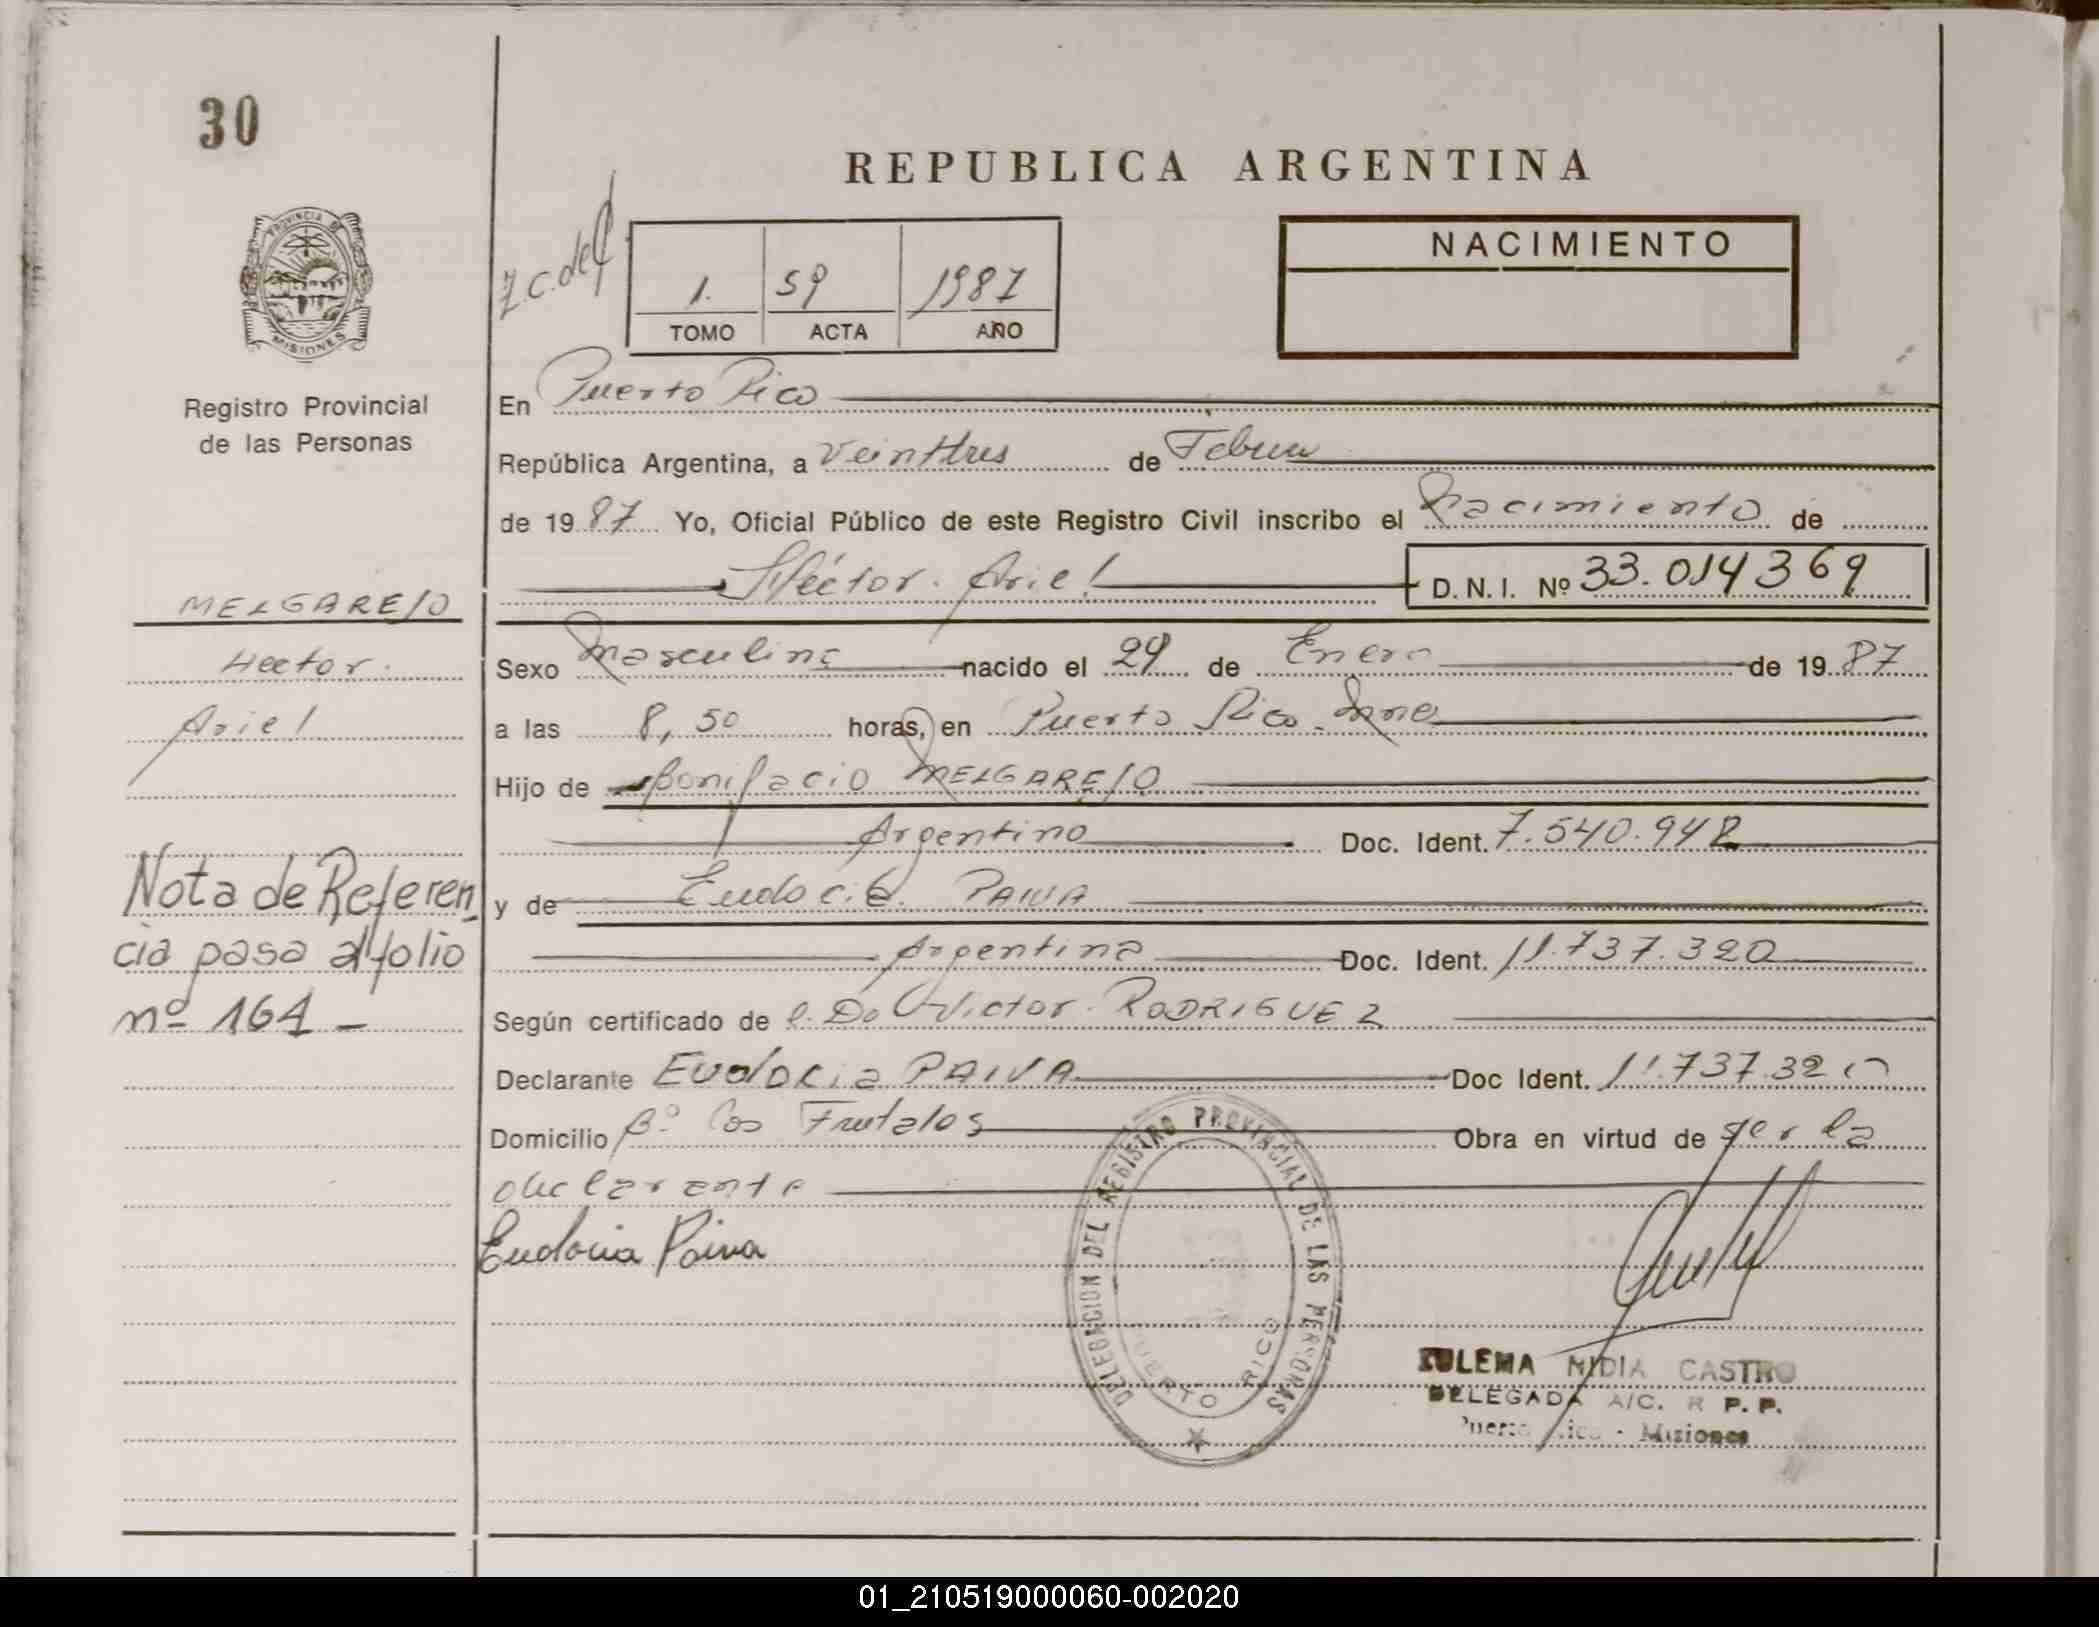 30
REPUBLICA ARGENTINA
PROVINCIA DE
MISIONES
NACIMIENTO
1. 59 1987
TOMO ACTA AÑO
Registro Provincial
de las Personas
En Puerto Rico
República Argentina, a Veinttres de
de 19 87 Yo, Oficial Público de este Registro Civil inscribo el Nacimiento de
Héctor. Ariel D.N.I. Nº 33.014369
MELGAREJO
Hector.
Ariel
Sexo Masculino nacido el 29 de Enero de 19 87
a las 8,50 horas, en Puerto Rico
Hijo de Bonifacio MELGAREJO
Argentino Doc. Ident. 7.540.942
y de Eudocia PAIVA
Argentina Doc. Ident. 11.737.320
Según certificado de Victor RODRIGUEZ
Declarante Eudocia PAIVA Doc Ident. 11.737.320
Domicilio Bº Los Frutales Obra en virtud de ser la
declarante
Eudocia Paiva
Nota de Referen
cia pasa al folio
nº 164 -
DELEGACION DEL REGISTRO PROVINCIAL DE LAS PERSONAS
PUERTO RICO
ZULEMA NIDIA CASTRO
DELEGADA A/C. R P. P.
Puerto Rico - Misiones
01_210519000060-002020